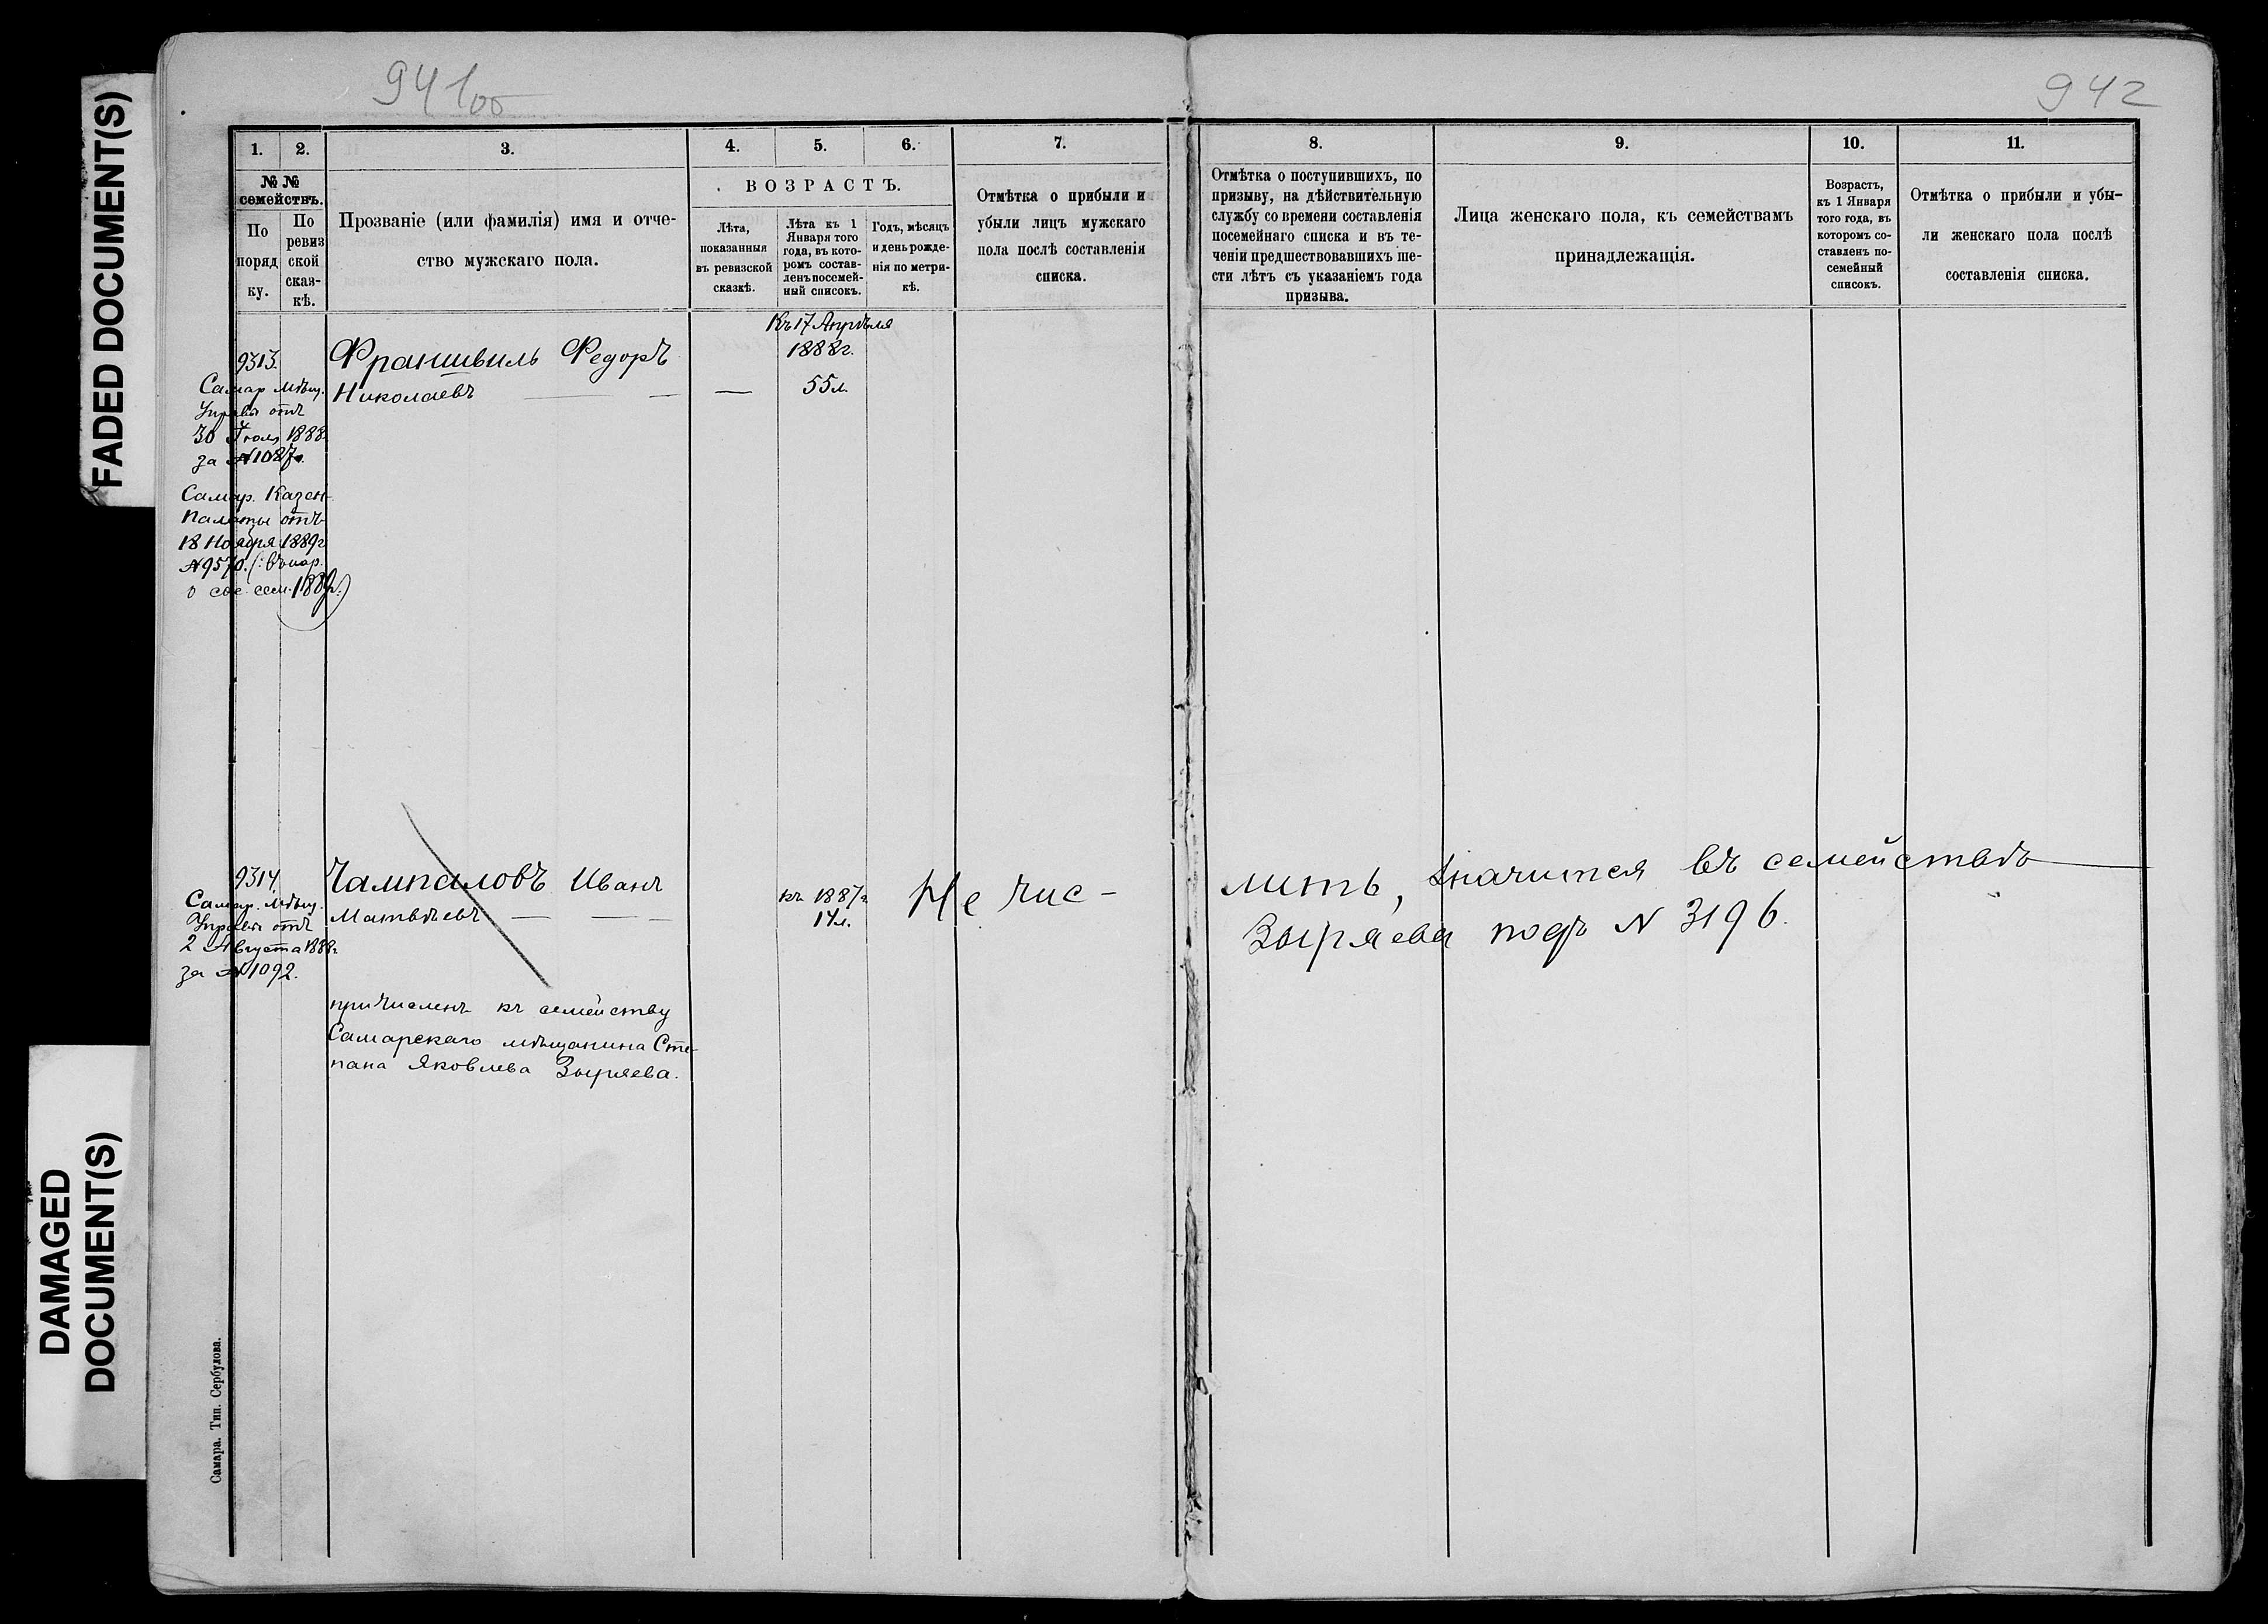 FADED DOCUMENT(S)
DAMAGED
DOCUMENT(S)
941об
942
1.
2.
3.
4.
5.
6.
7.
8.
9.
10.
11.
№ №
семействъ.
По
поряд
ку.
По
ревиз
ской
сказ-
кѣ.
Прозваніе (или фамилія) имя и отче-
ство мужскаго пола.
ВОЗРАСТЪ.
Лѣта,
показанныя
въ ревизской
сказкѣ.
Лѣта къ 1
Января того
года, въ кото-
ромъ состав-
ленъ посемей-
ный списокъ.
Годъ, мѣсяцъ
и день рожде-
нія по метри-
кѣ.
Отмѣтка о прибыли и
убыли лицъ мужскаго
пола послѣ составленія
списка.
Отмѣтка о поступившихъ, по
призыву, на дѣйствительную
службу со времени составленія
посемейнаго списка и въ те-
ченіи предшествовавшихъ ше-
сти лѣтъ съ указаніемъ года
призыва.
Лица женскаго пола, къ семействамъ
принадлежащія.
Возрастъ,
къ 1 Января
того года, въ
которомъ со-
ставленъ по-
семейный
списокъ.
Отмѣтка о прибыли и убы-
ли женскаго пола послѣ
составленія списка.
9313.
Самар Мѣщ.
Управы отъ
30 Іюля 1888
за №1087.
Самар. Казен
Палаты отъ
18 Ноября 1889г
№9570.
сем. 1889г.)
Франшвиль Федоръ
Николаевъ
Къ 17 Апрѣля
1888г.
— 55л.
9314
Самар. Мѣщ.
Управы отъ
2 Августа 1888г
за №1092.
Чампаловъ Иванъ
Матвѣевъ
къ 1887г
14л.
причисленъ къ семейству
Самарскаго мѣщанина Сте-
пана Яковлева Зыряева.
Не чис-
лить, значится въ семействѣ
Зыряева подъ № 3196.
Самара. Тип. Сербулова.